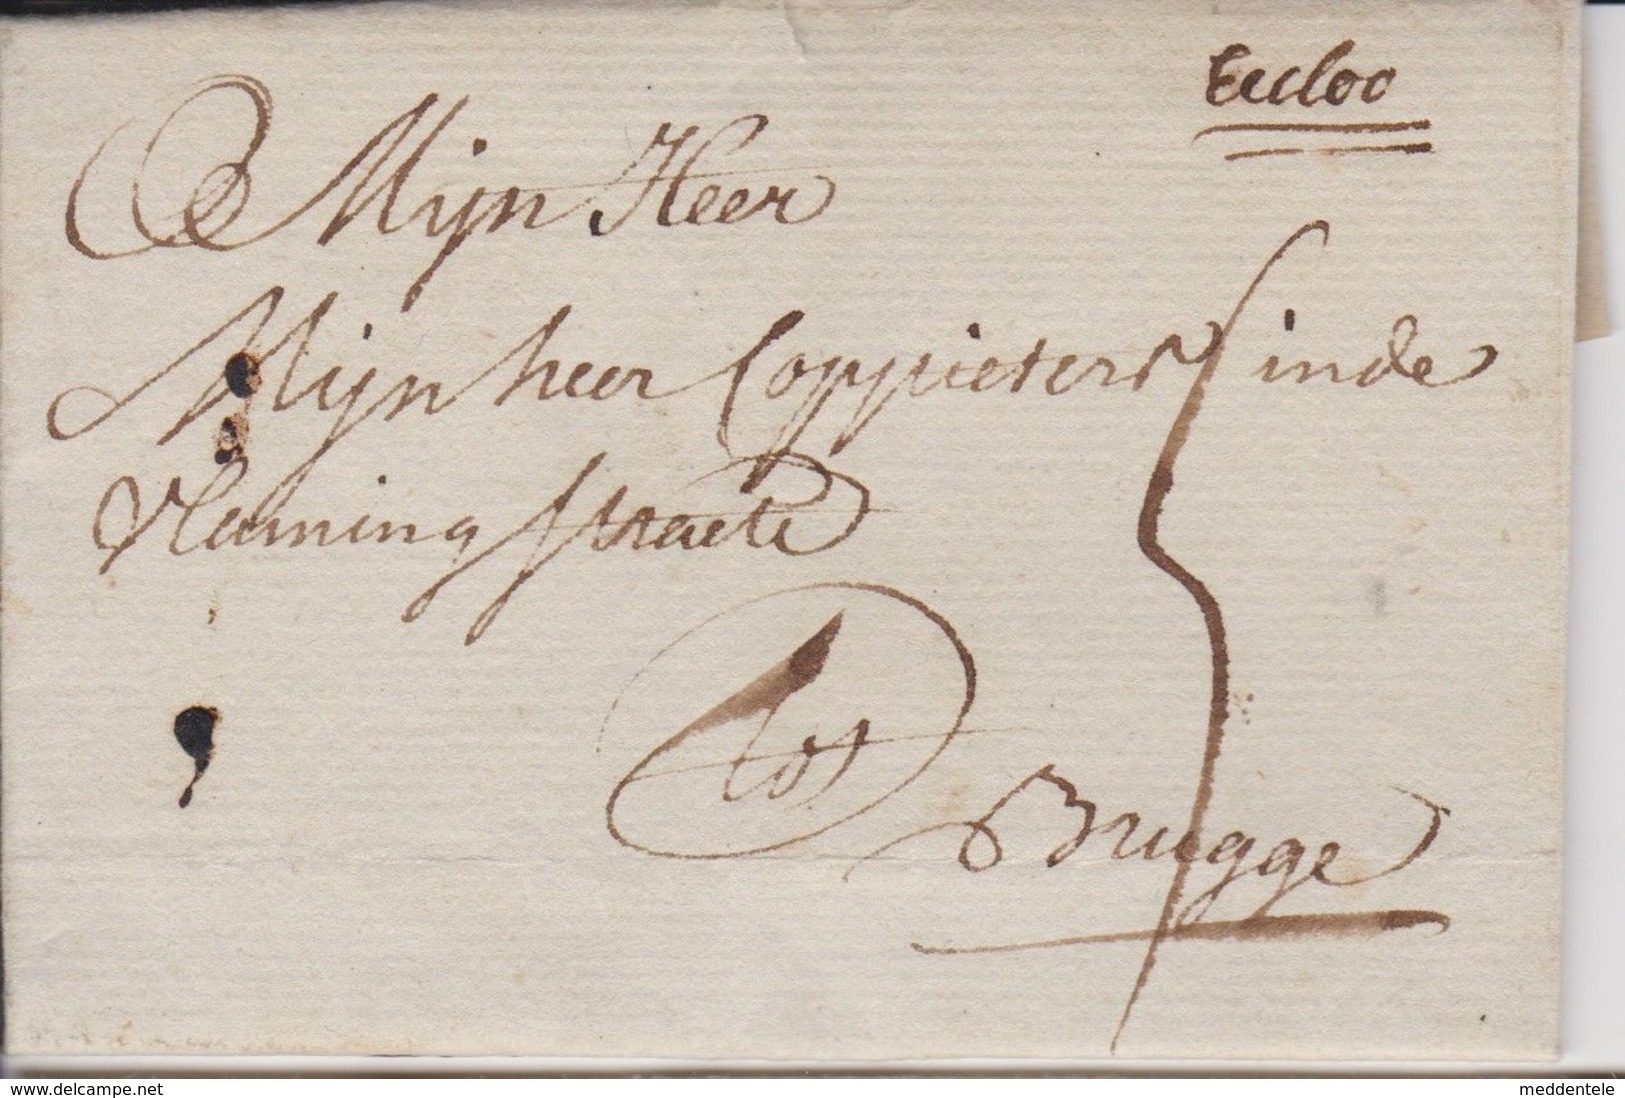 Eecloo
Mijn Heer
Mijn heer Coppieters inde
Vlaming straete
tot
Brugge
www.delcampe.net
meddentele